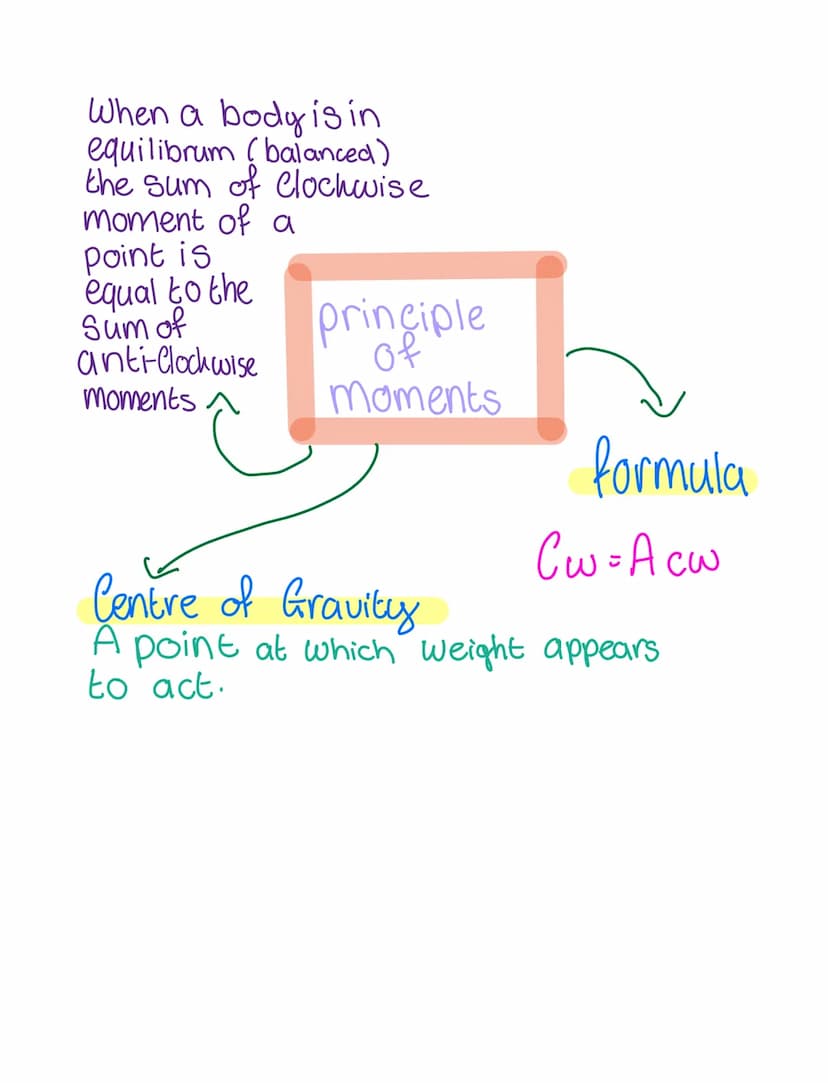 When a body is in
equilibrum (balanced)
the sum of clockwise
moment of a
point is
equal to the
sum of
anti-clockwise
moments
principle
of
moments
formula
Cw = Acw
Centre of Gravity
A point at which weight appears
to act.